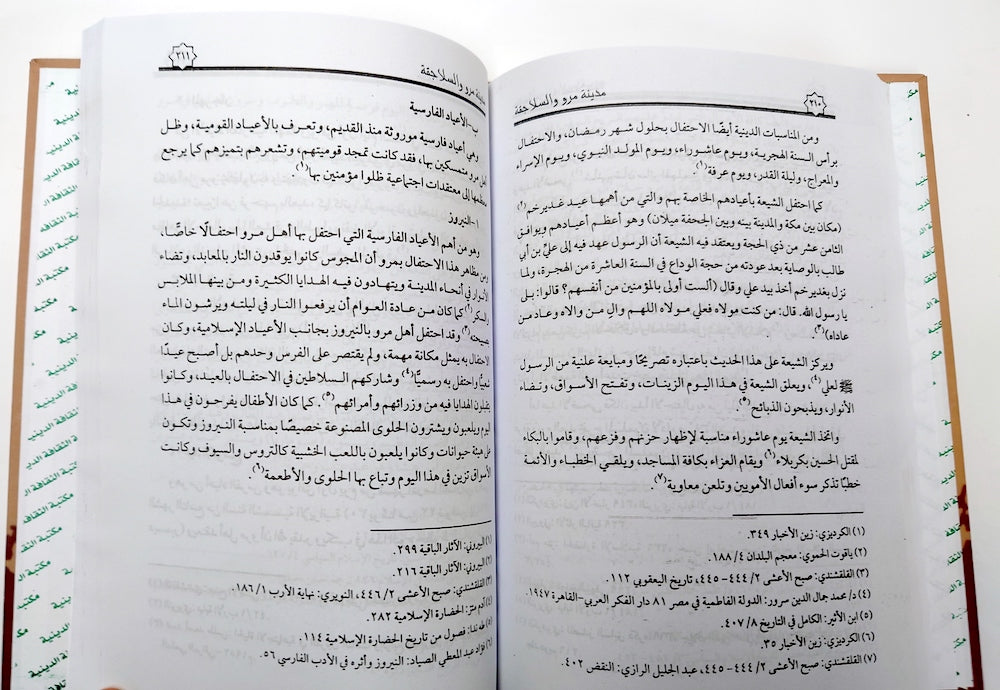 مدينة مرو والسلاجقة
٢١٠
ومن المناسبات الدينية أيضًا الاحتفال بحلول شهر رمضان، والاحتفال
برأس السنة الهجرية، ويوم عاشوراء، ويوم المولد النبوي، ويوم الإسراء
والمعراج، وليلة القدر، ويوم عرفة(١).
كما احتفل الشيعة بأعيادهم الخاصة بهم والتي من أهمها عيد غدير خم(٢)
(مكان بين مكة والمدينة بينه وبين الجحفة ميلان) وهو أعظم أعيادهم ويوافق
الثامن عشر من ذي الحجة ويعتقد فيه الشيعة أن الرسول عهد فيه إلى عليّ بن أبي
طالب بالوصاية بعد عودته من حجة الوداع في السنة العاشرة من الهجرة، ولما
نزل بغدير خم أخذ بيد علي وقال (ألست أولى بالمؤمنين من أنفسهم؟ قالوا: بل
يا رسول الله. قال: من كنت مولاه فعلي مولاه اللهم وال من والاه وعاد من
عاداه)(٣).
ويركز الشيعة على هذا الحديث باعتباره تصريحًا ومبايعة علنية من الرسول
ﷺ لعلي(٤)، ويعلق الشيعة في هذا اليوم الزينات، وتفتح الأسواق، وتضاء
الأنوار، ويذبحون الذبائح(٥).
واتخذ الشيعة يوم عاشوراء مناسبة لإظهار حزنهم وفزعهم، وقاموا بالبكاء
لمقتل الحسين بكربلاء(٦) ويقام العزاء بكافة المساجد، ويلقي الخطباء والأئمة
خطبًا تذكر سوء أفعال الأمويين وتلعن معاوية(٧).
(١) الكرديزي: زين الأخبار ٣٤٩.
(٢) ياقوت الحموي: معجم البلدان ٤/ ١٨٨.
(٣) القلقشندي: صبح الأعشى ٢/ ٤٤٤ – ٤٤٥، تاريخ اليعقوبي ١١٢.
(٤) د/ محمد جمال الدين سرور: الدولة الفاطمية في مصر ٨١ دار الفكر العربي-القاهرة ١٩٤٧.
(٥) ابن الأثير: الكامل في التاريخ ٨/ ٤٠٧.
(٦) الكرديزي: زين الأخبار ٣٥.
(٧) القلقشندي: صبح الأعشى ٢/ ٤٤٤ – ٤٤٥، عبد الجليل الرازي: النقض ٤٠٢.
مدينة مرو والسلاجقة
٢١١
ب-الأعياد الفارسية
وهي أعياد فارسية موروثة منذ القديم، وتعرف بالأعياد القومية، وظل
أهل مرو متمسكين بها، فقد كانت تمجد قوميتهم، وتشعرهم بتميزهم كما يرجع
معظمها إلى معتقدات اجتماعية ظلوا مؤمنين بها(١).
١-النيروز
وهو من أهم الأعياد الفارسية التي احتفل بها أهل مرو احتفالًا خاصًّا،
ومن مظاهر هذا الاحتفال بمرو أن المجوس كانوا يوقدون النار بالمعابد، وتضاء
الأنوار في أنحاء المدينة ويتهادون فيه الهدايا الكثيرة ومن بينها الملابس
والسكر(٢) كما كان من عادة العوام أن يرفعوا النار في ليلته ويرشون الماء
صبيحته(٣) وقد احتفل أهل مرو بالنيروز بجانب الأعياد الإسلامية، وكان
الاحتفال به يمثل مكانة مهمة، ولم يقتصر على الفرس وحدهم بل أصبح عيدًا
شعبيًّا واحتفل به رسميًّا(٤) وشاركهم السلاطين في الاحتفال بالعيد، وكانوا
يتقبلون الهدايا فيه من وزرائهم وأمرائهم(٥). كما كان الأطفال يفرحون في هذا
اليوم ويلعبون ويشترون الحلوى المصنوعة خصيصًا بمناسبة النيروز وتكون
على هيئة حيوانات وكانوا يلعبون باللعب الخشبية كالتروس والسيوف وكانت
الأسواق تزين في هذا اليوم وتباع بها الحلوى والأطعمة(٦).
(١) البيروني: الآثار الباقية ٢٩٩.
(٢) البيروني: الآثار الباقية ٢١٦.
(٣) القلقشندي: صبح الأعشى ٢/ ٤٤٦، النويري: نهاية الأرب ١/ ١٨٦.
(٤) آدم متز: الحضارة الإسلامية ٢٨٢.
(٥) طه ندا: فصول من تاريخ الحضارة الإسلامية ١١٤.
(٦) فؤاد عبد المعطي الصياد: النيروز وأثره في الأدب الفارسي ٥٦.